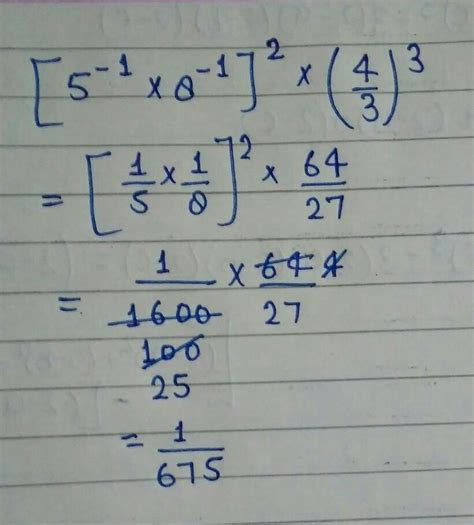 [5⁻¹ × 8⁻¹]² × (4/3)³
= [1/5 × 1/8]² × 64/27
= 1/1600 × 64/27 4
100
25
= 1/675